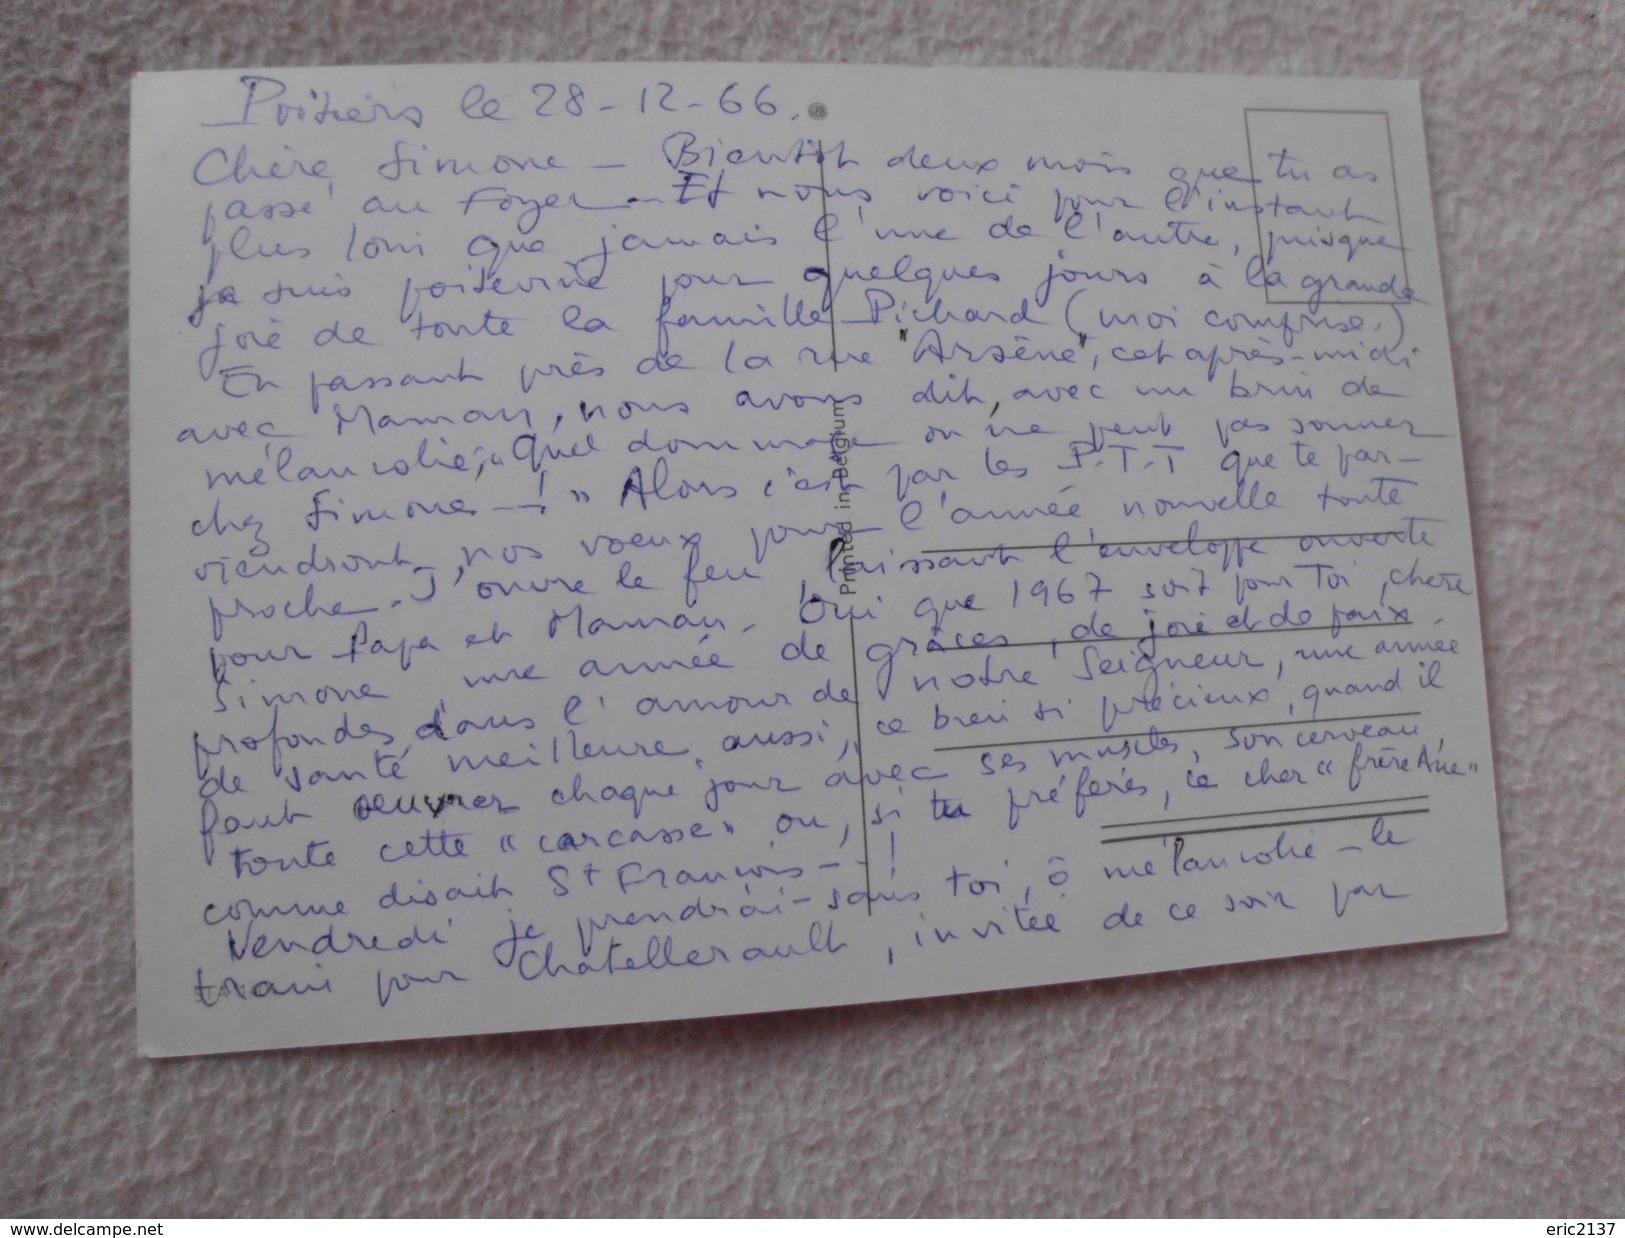 Poitiers le 28-12-66.
Chère Simone - Bientôt deux mois que tu as
passé au Foyer - Et nous voici pour l'instant
plus loin que jamais l'une de l'autre, puisque
je suis poitevine pour quelques jours à la grande
joie de toute la famille Pichard (moi comprise.)
En passant près de la rue "Arsène", cet après-midi
avec Maman, nous avons dit, avec un brin de
mélancolie, "Quel dommage on ne peut pas sonner
chez Simone - ! " Alors c'est par les P.T.T que te par-
viendront nos vœux pour l'année nouvelle toute
proche. J'ouvre le feu, laissant l'enveloppe ouverte
pour Papa et Maman. Oui que 1967 soit pour Toi, chère
Simone, une année de grâces, de joie et de paix
profondes dans l'amour de notre Seigneur, une année
de santé meilleure aussi, ce bien si précieux, quand il
faut œuvrer chaque jour avec ses muscles, son cerveau,
toute cette "carcasse" ou, si tu préfères, ce cher "frère Ane"
comme disait St François - !
Vendredi je prendrai - sans toi, ô mélancolie - le
train pour Chatellerault, invitée de ce soir par
Printed in Belgium
www.delcampe.net
eric2137